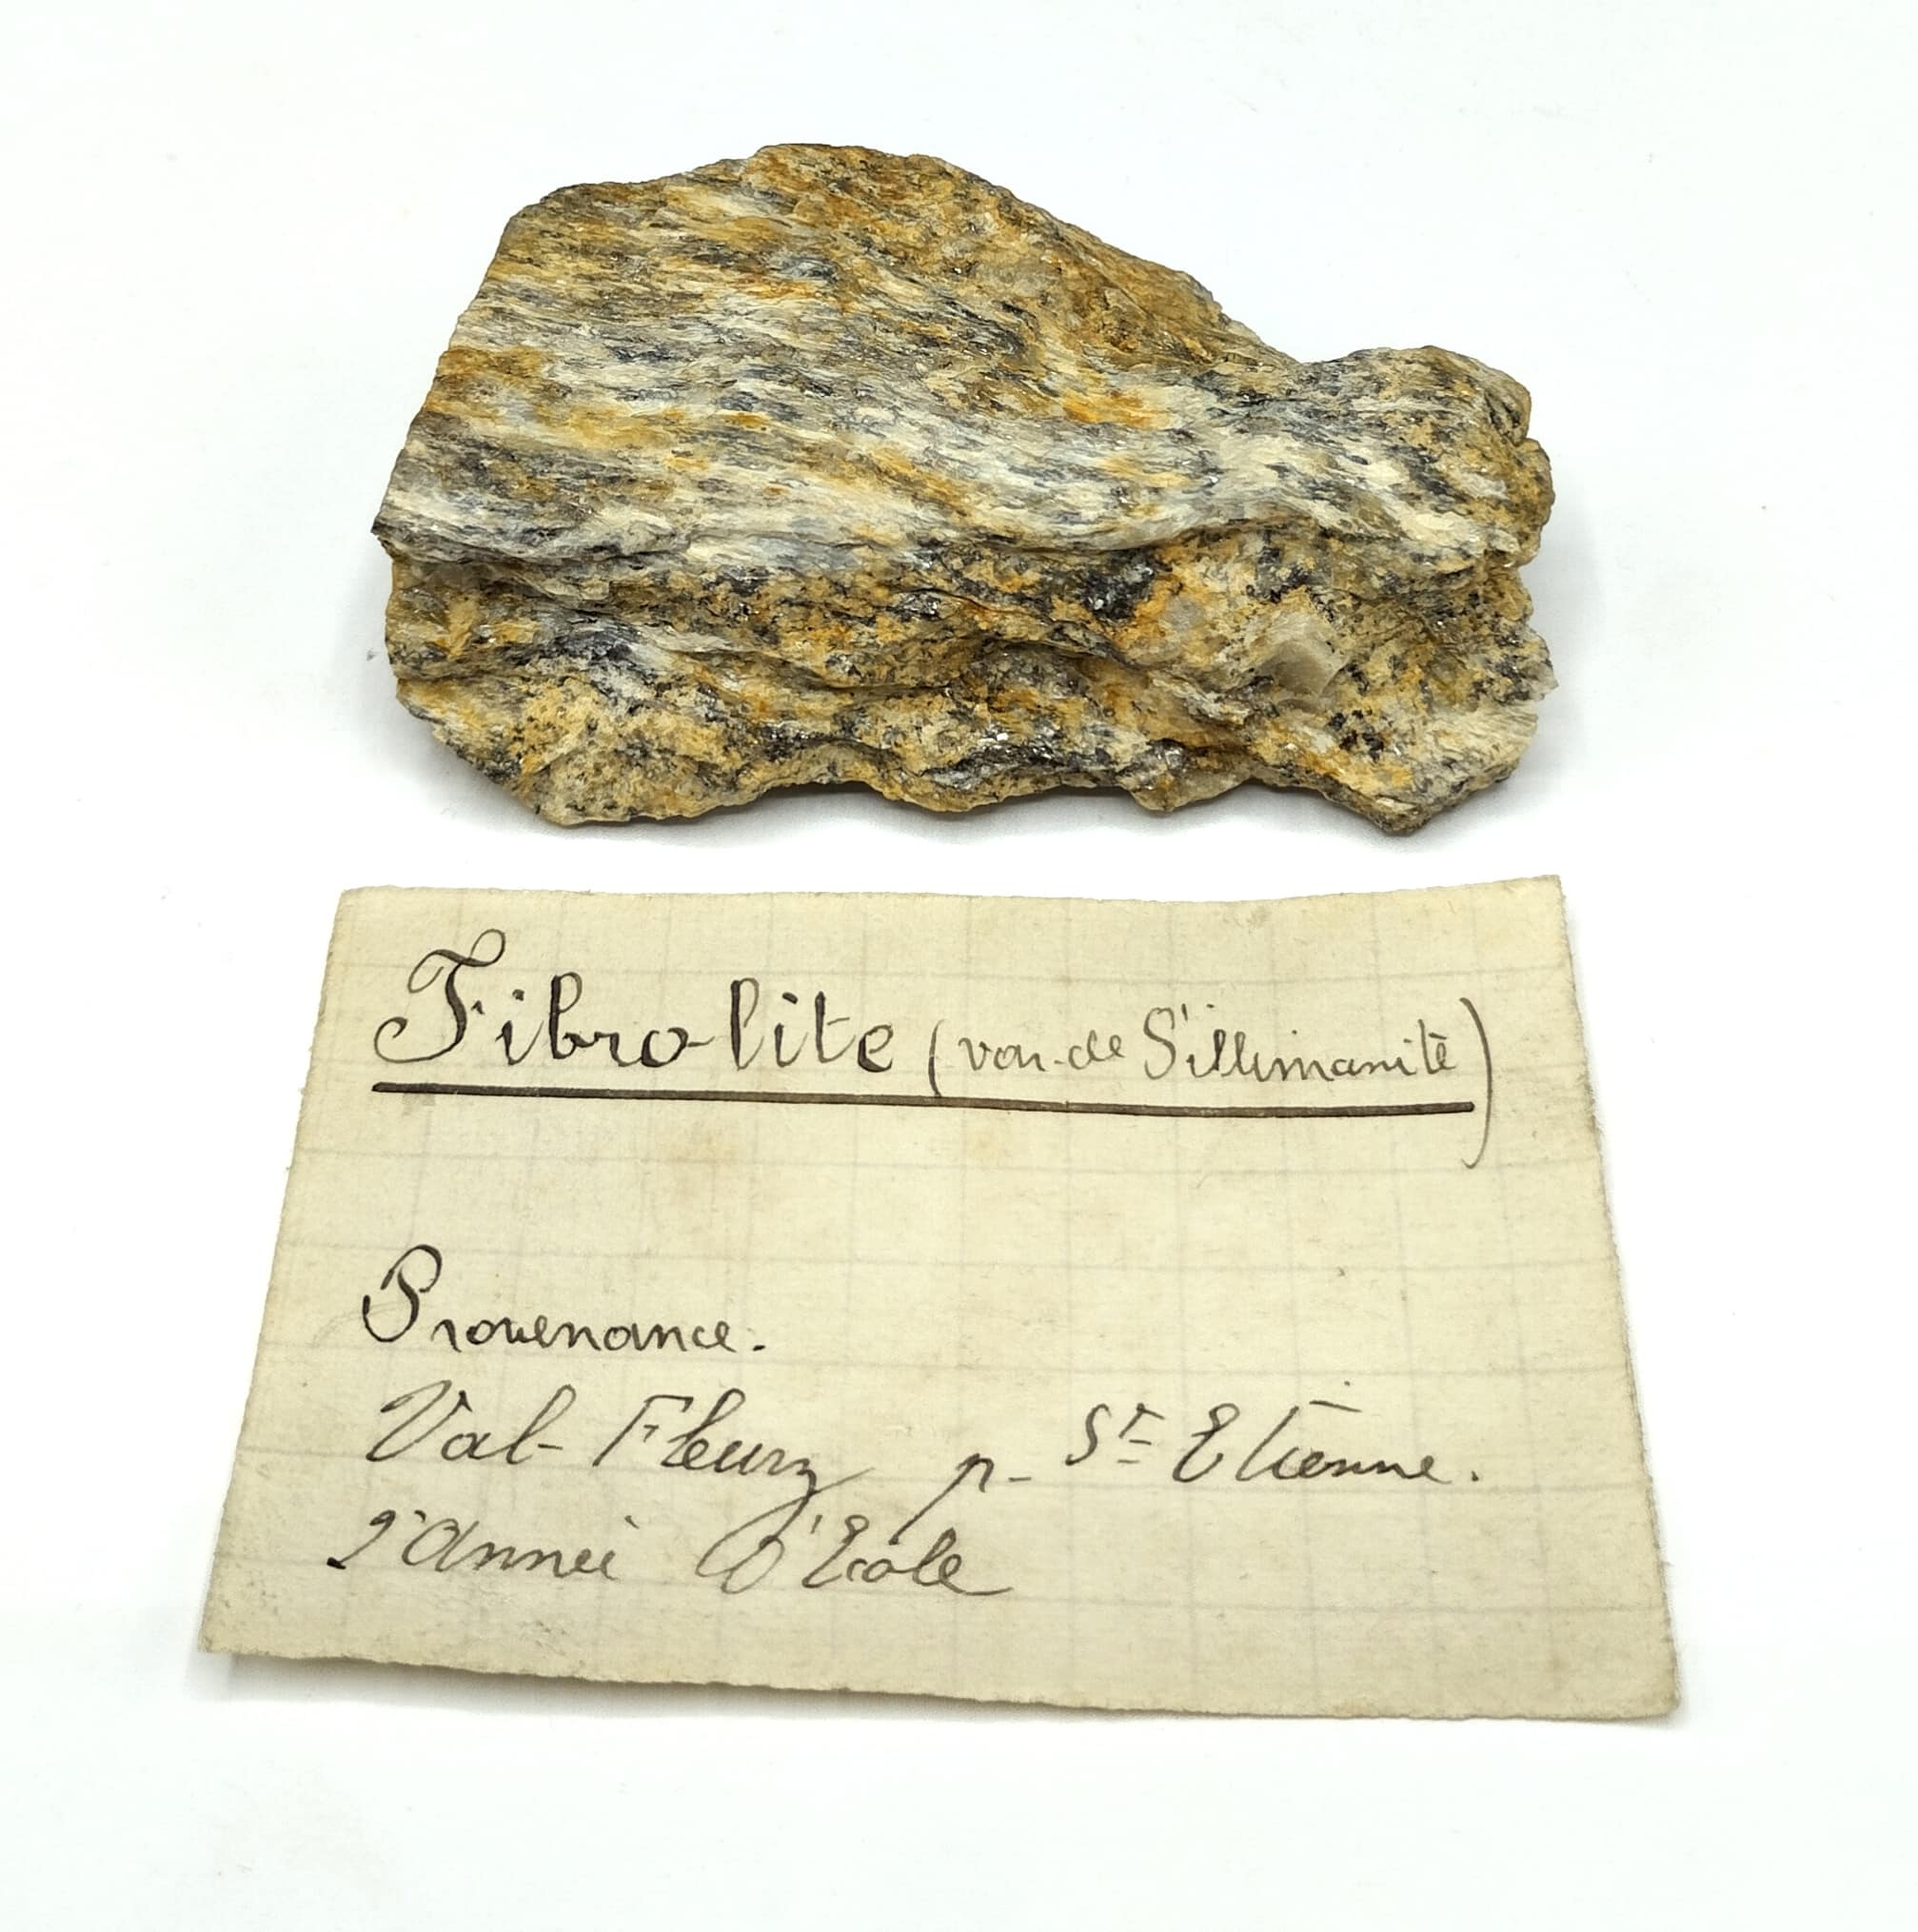 Fibrolite (var. de Sillimanite)
Provenance.
Val-Fleury p. St Etienne.
2e Année d'Ecole